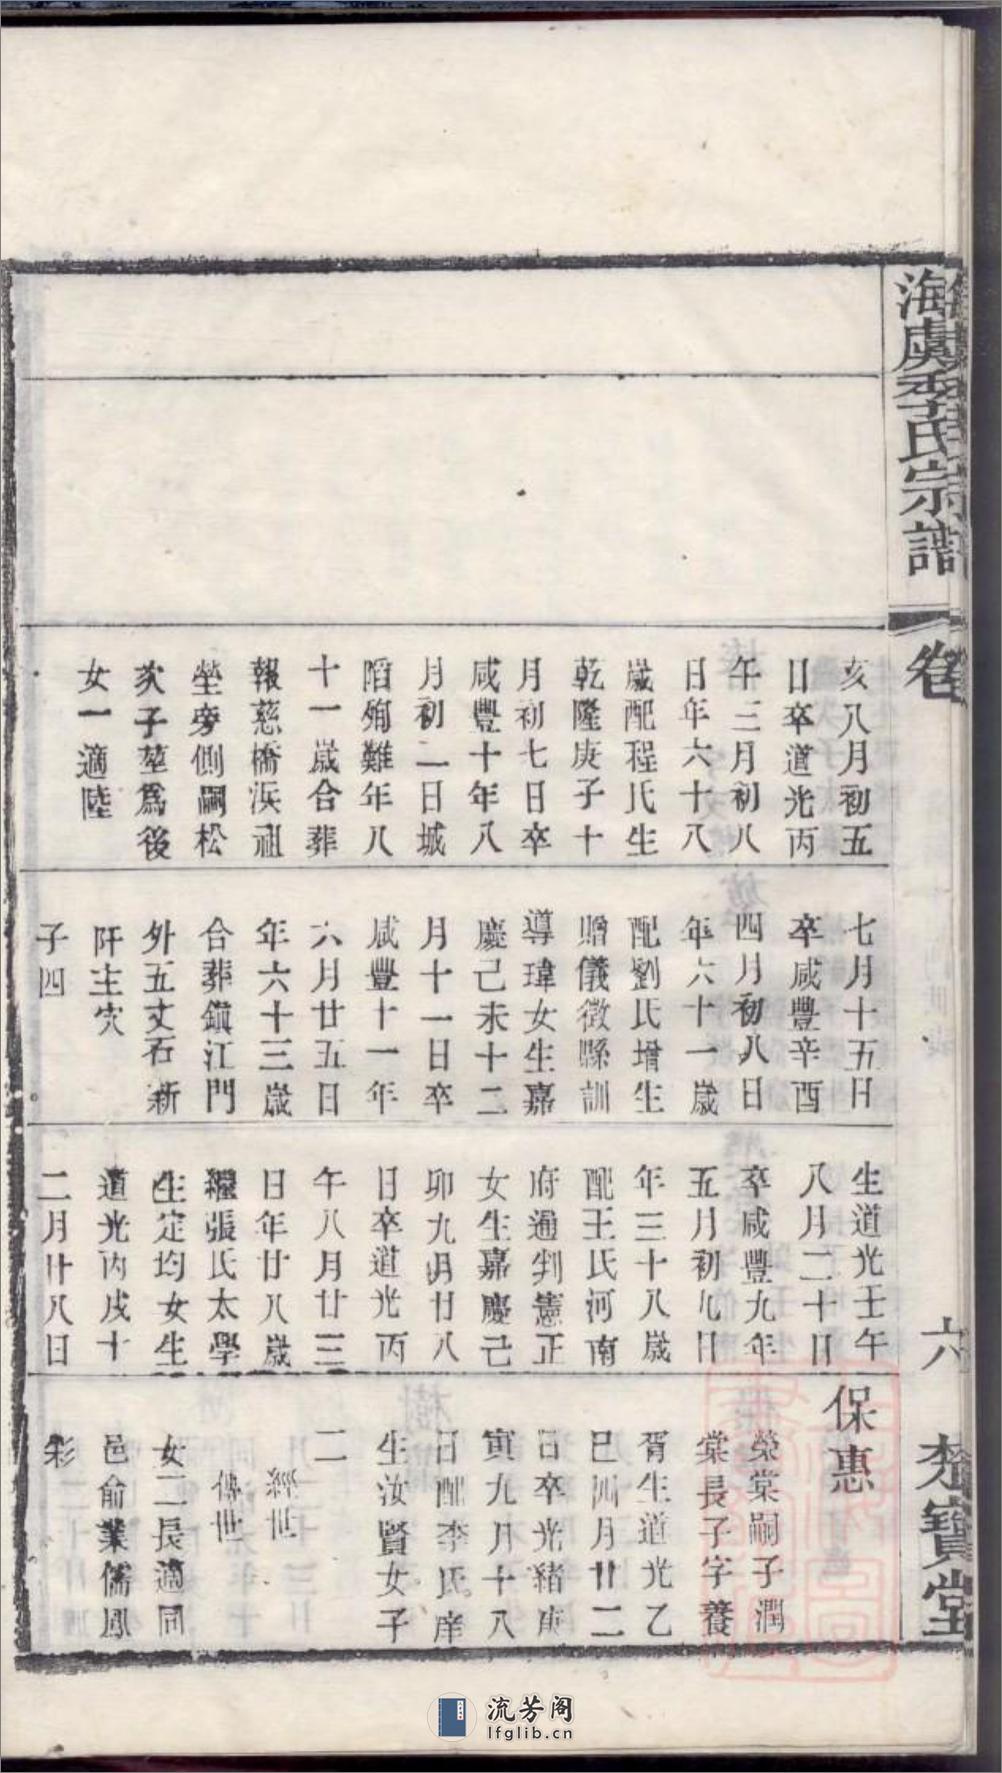 海虞李氏宗譜
卷
六
亥八月初五
日卒道光丙
午三月初八
日年六十八
歲配程氏生
乾隆庚子十
月初七日卒
咸豐十年八
月初二日城
陷殉難年八
十一歲合葬
報慈橋浜祖
塋旁側嗣松
次子堃為後
女一適陸
七月十五日
卒咸豐辛酉
四月初八日
年六十一歲
配劉氏增生
贈儀徵縣訓
導瑋女生嘉
慶己未十二
月十一日卒
咸豐十一年
六月廿五日
年六十三歲
合葬鎮江門
外五丈石新
阡主穴
子四
生道光壬午
八月二十日
卒咸豐九年
五月初九日
年三十八歲
配王氏河南
府通判憲正
女生嘉慶己
卯九月廿八
日卒道光丙
午八月廿三
日年廿八歲
繼張氏太學
生定均女生
道光丙戌十
二月廿八日
保惠
榮棠嗣子潤
棠長子字養
胥生道光乙
巳四月廿二
日卒光緒庚
寅九月十八
日配李氏庠
生汝賢女子
二
經世
傳世
女二長適同
邑俞業儒鳳
彩
寶堂
流芳阁
lfglib.cn